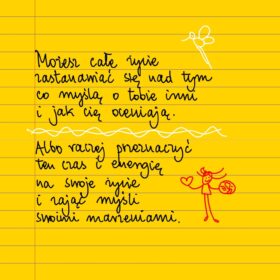 Możesz całe życie
zastanawiać się nad tym
co myślą o tobie inni
i jak cię oceniają.
Albo raczej przeznaczyć
ten czas i energię
na swoje życie
i zająć myśli
swoimi marzeniami.